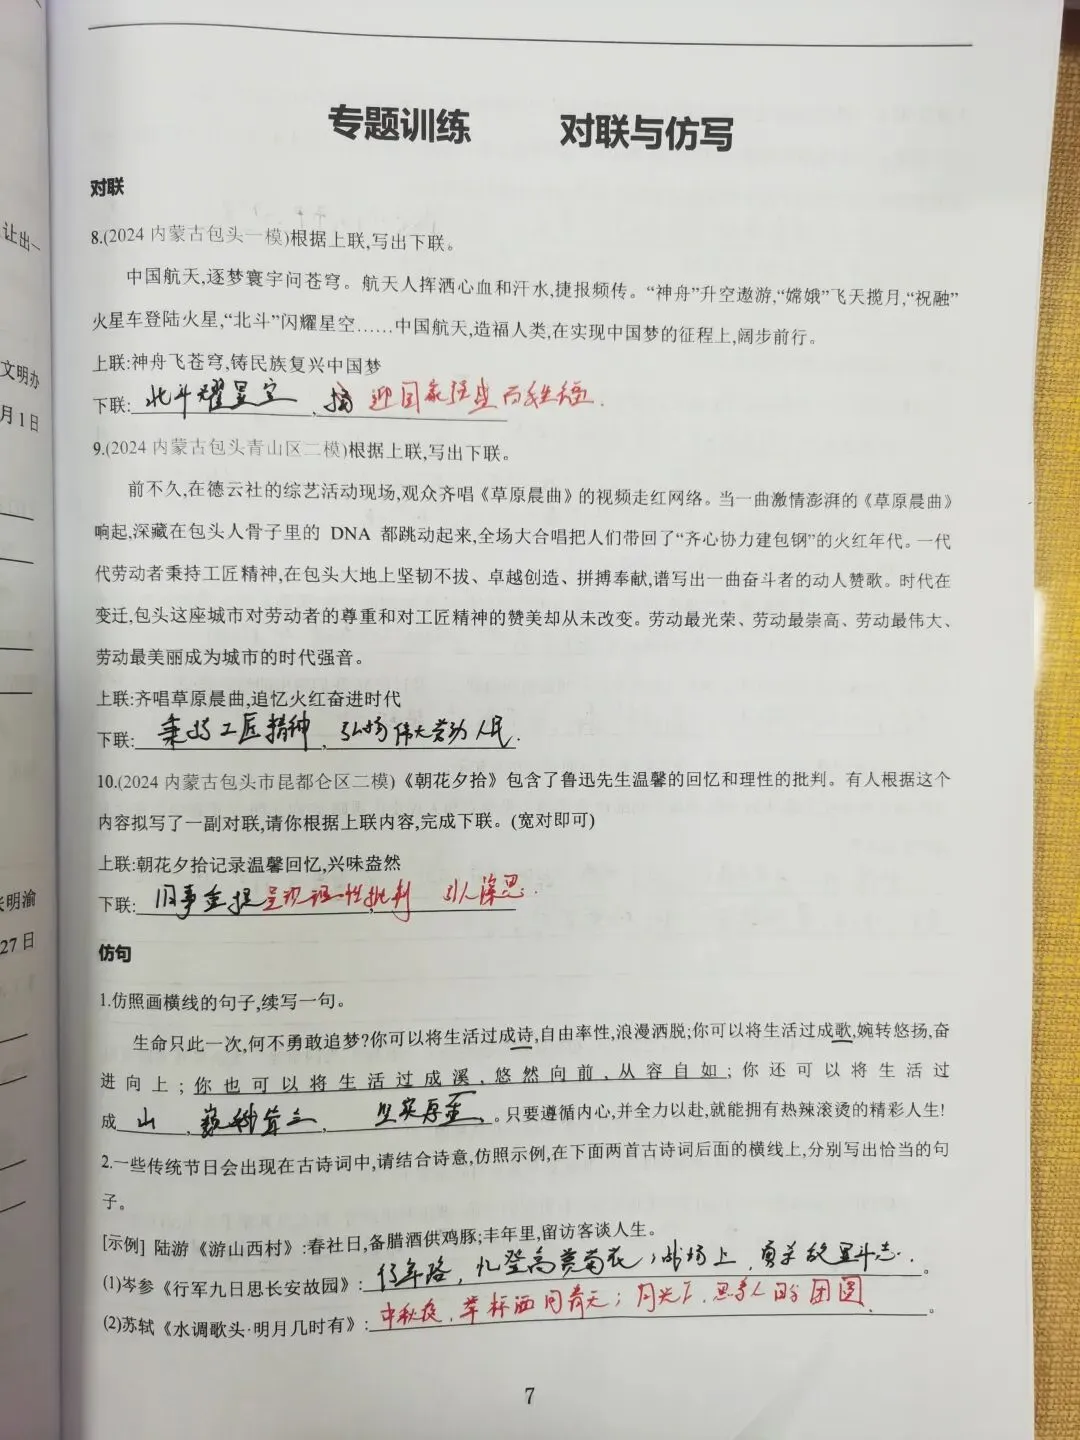 专题训练 对联与仿写
对联
让出一
8.(2024 内蒙古包头一模)根据上联,写出下联。
中国航天,逐梦寰宇问苍穹。航天人挥洒心血和汗水,捷报频传。“神舟”升空遨游,“嫦娥”飞天揽月,“祝融”
火星车登陆火星,“北斗”闪耀星空……中国航天,造福人类,在实现中国梦的征程上,阔步前行。
上联:神舟飞苍穹,铸民族复兴中国梦
文明办
下联: 北斗耀星空 , 迎国家强盛
月 1 日
9.(2024 内蒙古包头青山区二模)根据上联,写出下联。
前不久,在德云社的综艺活动现场,观众齐唱《草原晨曲》的视频走红网络。当一曲激情澎湃的《草原晨曲》
响起,深藏在包头人骨子里的 DNA 都跳动起来,全场大合唱把人们带回了“齐心协力建包钢”的火红年代。一代
代劳动者秉持工匠精神,在包头大地上坚韧不拔、卓越创造、拼搏奉献,谱写出一曲奋斗者的动人赞歌。时代在
变迁,包头这座城市对劳动者的尊重和对工匠精神的赞美却从未改变。劳动最光荣、劳动最崇高、劳动最伟大、
劳动最美丽成为城市的时代强音。
上联:齐唱草原晨曲,追忆火红奋进时代
下联: 秉持工匠精神 , 弘扬伟大劳动人民.
10.(2024 内蒙古包头市昆都仑区二模)《朝花夕拾》包含了鲁迅先生温馨的回忆和理性的批判。有人根据这个
内容拟写了一副对联,请你根据上联内容,完成下联。(宽对即可)
上联:朝花夕拾记录温馨回忆,兴味盎然
长明渝
下联: 旧事重提呈现理性批判, 引人深思.
27 日
仿句
1.仿照画横线的句子,续写一句。
生命只此一次,何不勇敢追梦?你可以将生活过成诗,自由率性,浪漫洒脱;你可以将生活过成歌,婉转悠扬,奋
进向上;你也可以将生活过成溪,悠然向前,从容自如;你还可以将生活过
成 山 , 巍然耸立 , 坚实厚重 。只要遵循内心,并全力以赴,就能拥有热辣滚烫的精彩人生!
2.一些传统节日会出现在古诗词中,请结合诗意,仿照示例,在下面两首古诗词后面的横线上,分别写出恰当的句
子。
[示例] 陆游《游山西村》:春社日,备腊酒供鸡豚;丰年里,留访客谈人生。
(1)岑参《行军九日思长安故园》: 行军路, 忆登高赏菊花; 战场上, 斗志. 。
(2)苏轼《水调歌头·明月几时有》: 中秋夜, 举杯酒问青天; 月光下, 思亲人盼团圆. 。
7